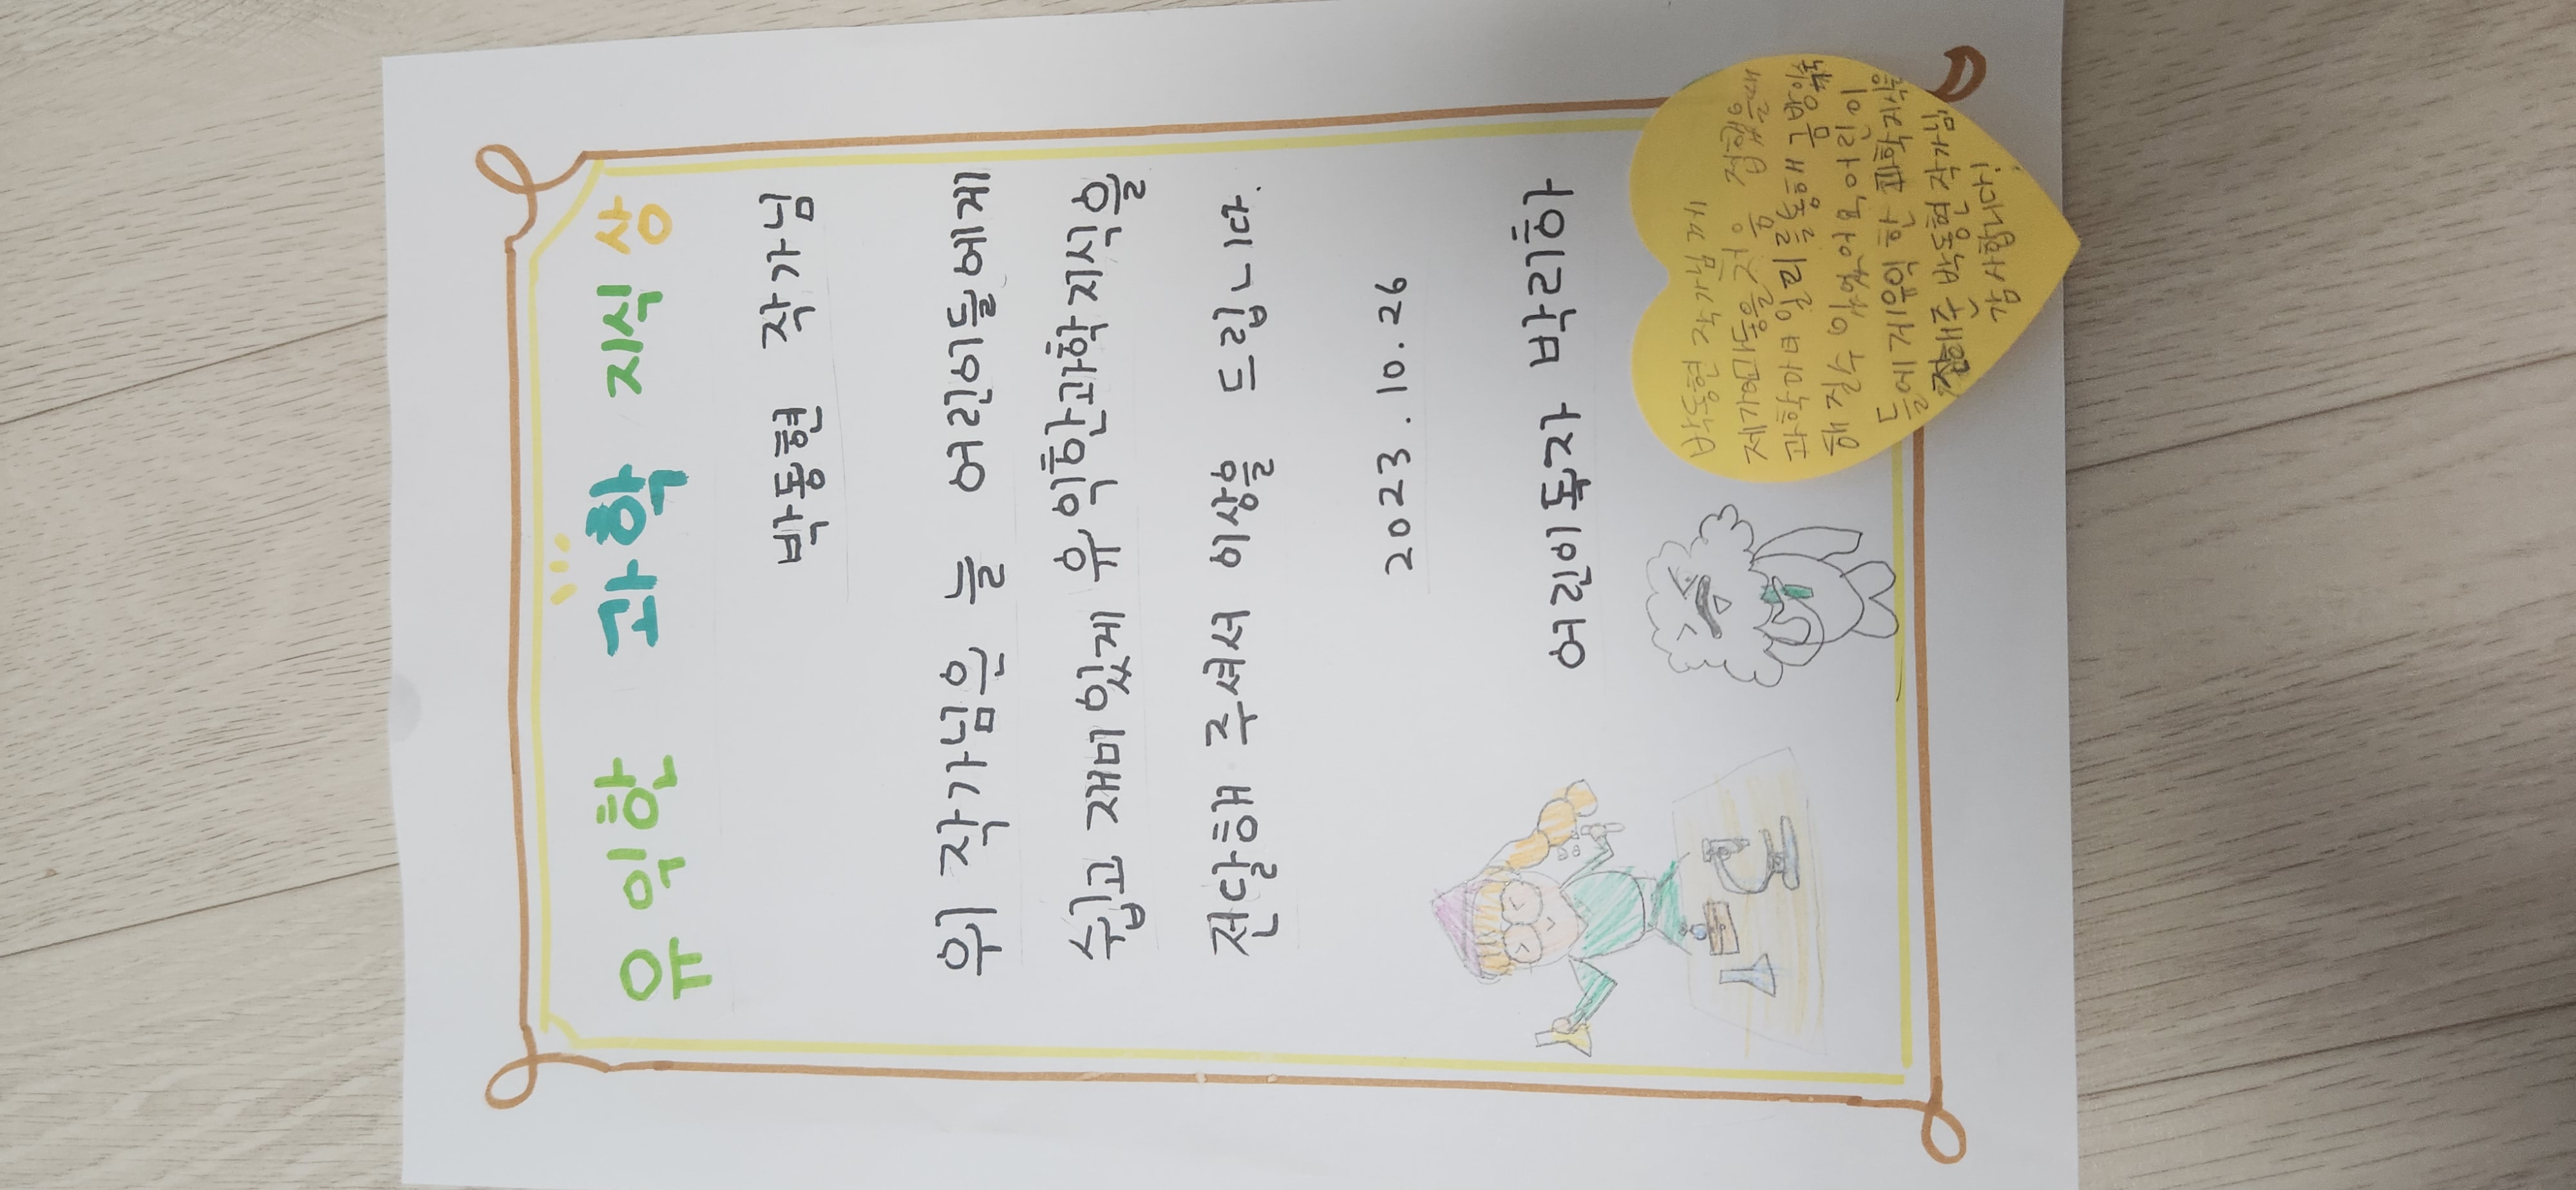 유익한 과학 지식 상
박동현 작가님
위 작가님은 늘 어린이들에게
쉽고 재미있게 유익한과학지식을
전달해 주셔서 이상을 드립니다.
2023.10.26
어린이독자 박리하
박동현 작가님께
제가 처음 접했을때
과학마법 일리를통해 금방이
해질수 있었어요 어린이
들에게유익한 과학지식을
전해준 박동현 작가님,
감사합니다!